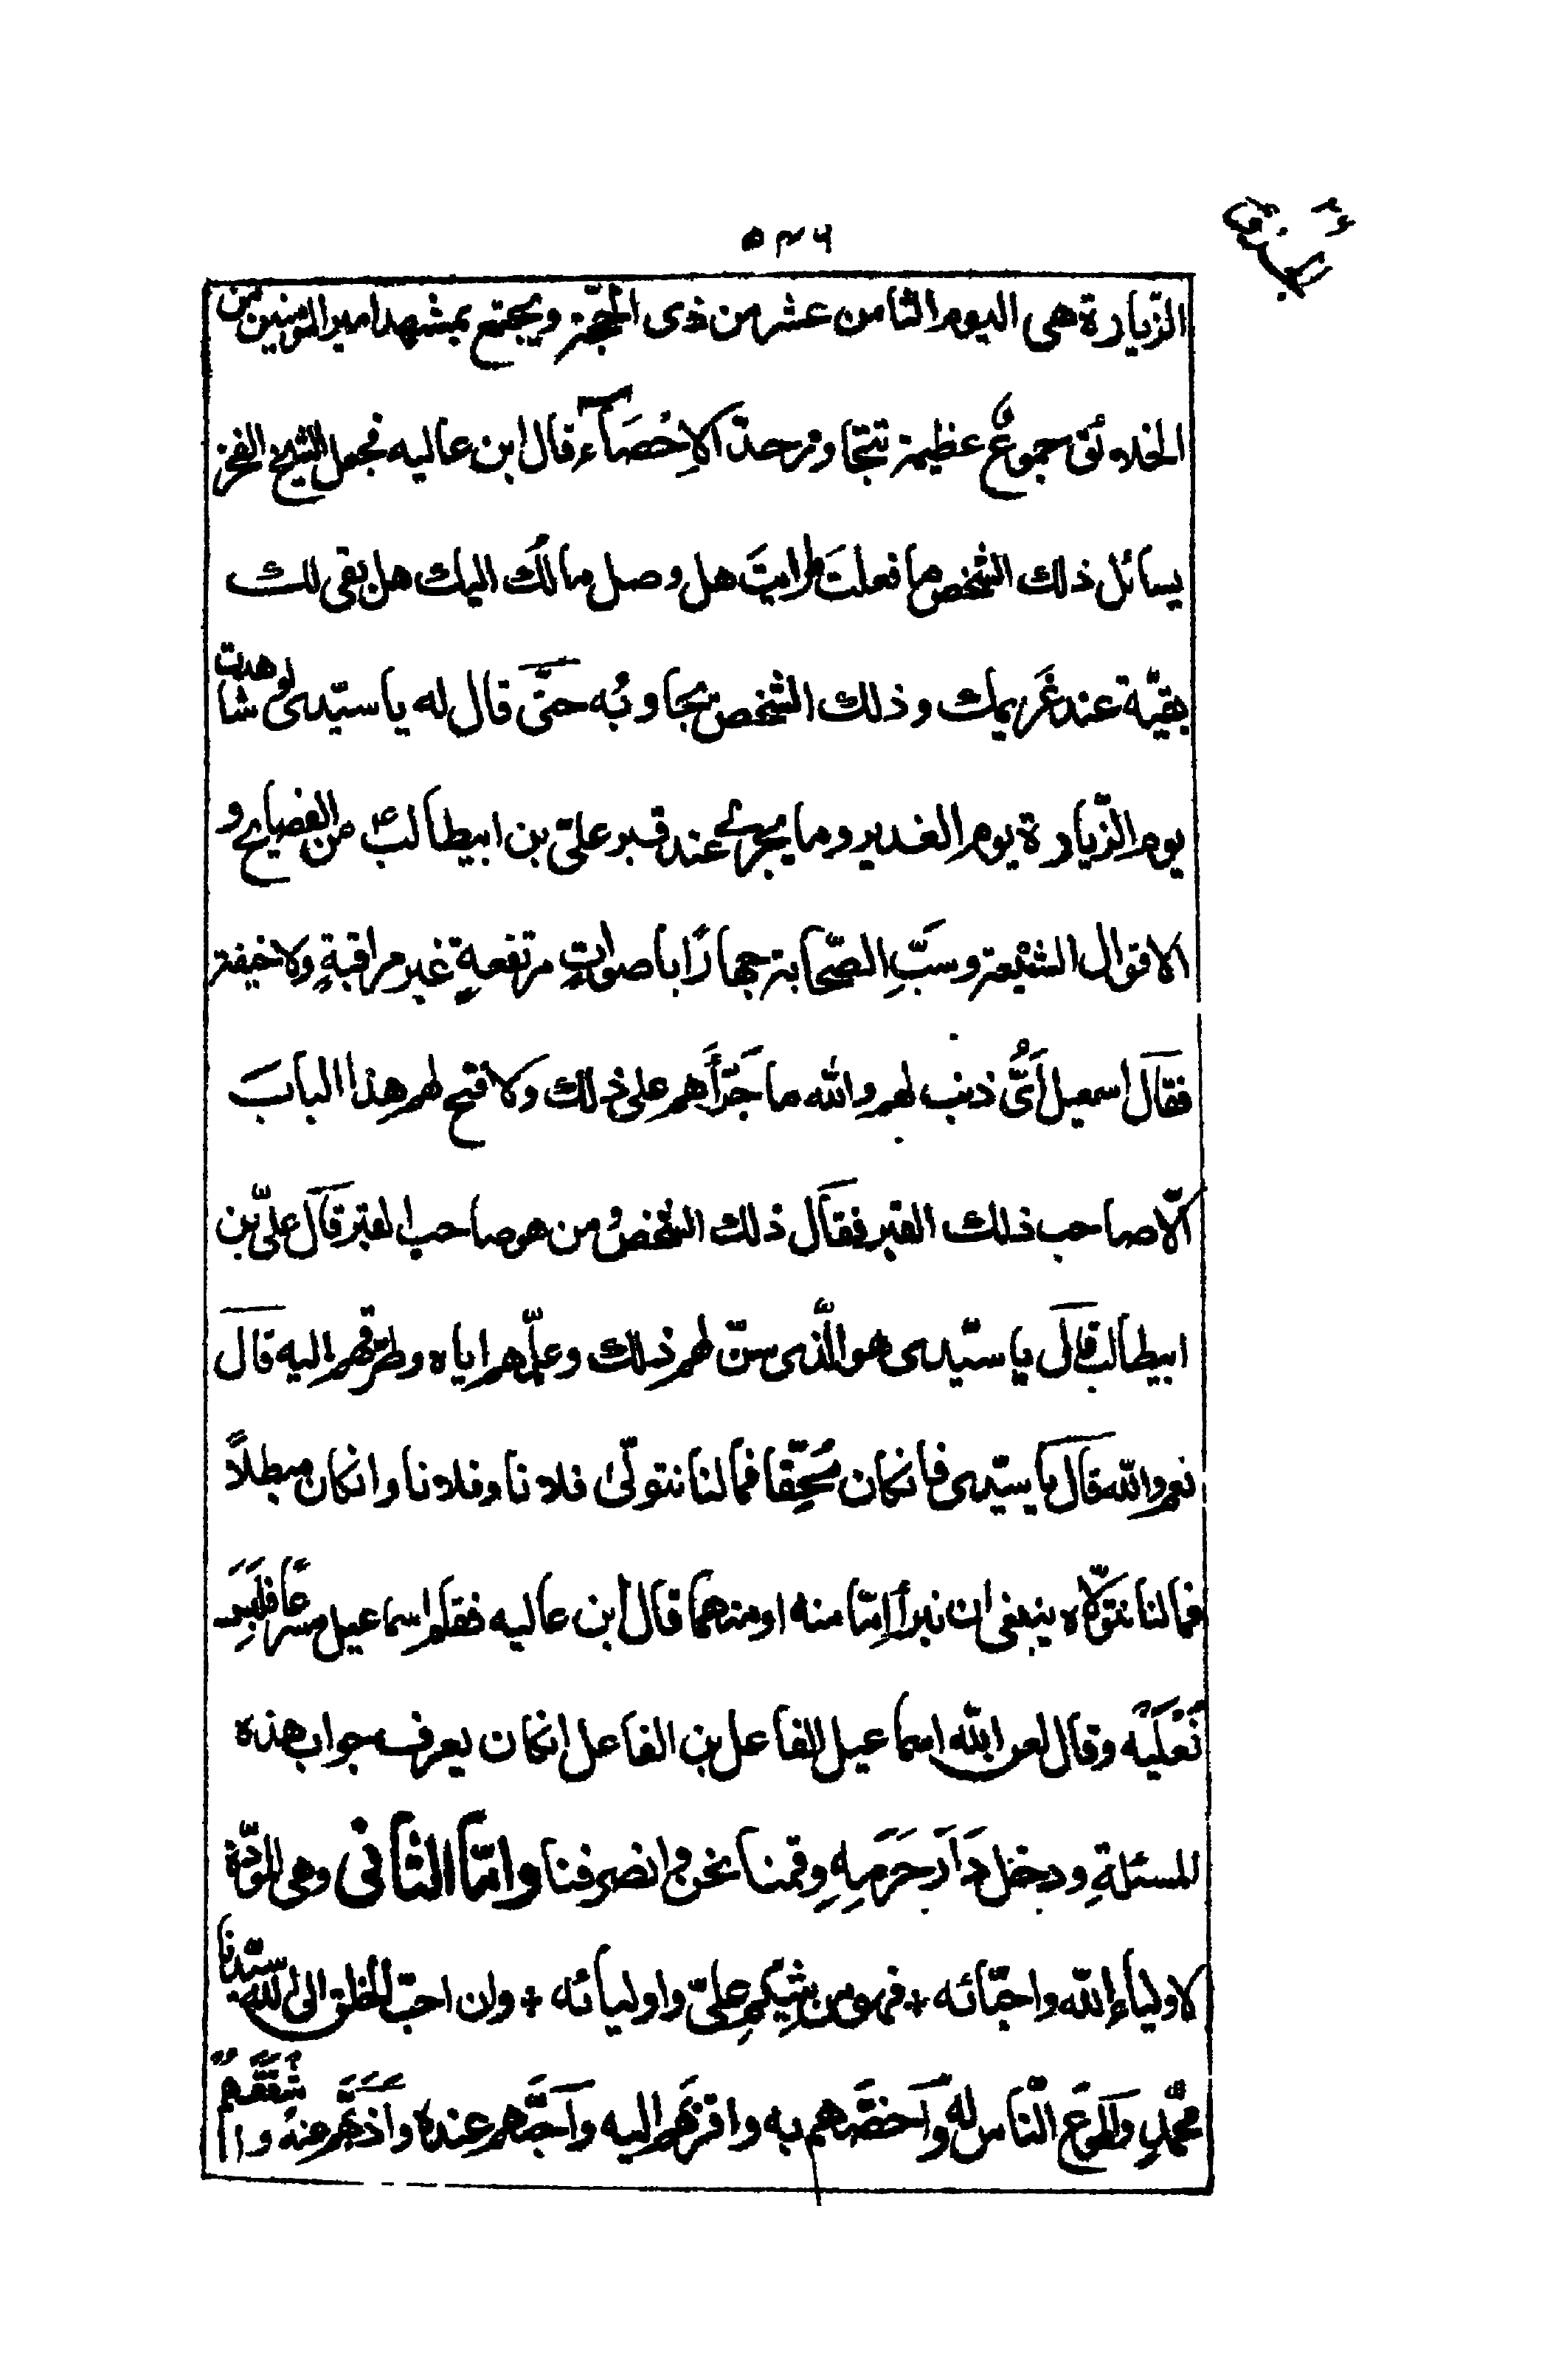 ٥٣٦
الزّيارة هى اليوم الثامن عشر من ذى الحجّة ويجتمع بمشهد امير المؤمنين من
الخلائق جموعٌ عظيمة تتجاوز حدّ الاِحْصَاۤء قال ابن عاليه فجعل الشيخ الفخر
يسائل ذلك الشخص ما فعلتَ ما رايتَ هل وصل مالُك اليك هل بقى لك
بقيّة عند غَريمك وذلك الشخص يجاوبُه حتّى قال له يا سيّدى لو شاهدت
يوم الزّيارة يوم الغدير وما يجرى عند قبر علىّ بن ابيطالبؑ من الفضايح و
الاقوال الشنيعة وسبِّ الصّحابة جهارًا باصواتٍ مرتفعةٍ غير مراقبةٍ ولا خيفة
فقال اسمعيل اَىُّ ذنب لهم والله ما جَرَّأَهم على ذلك ولا فتح لهم هذا البابَ
الّا صاحب ذلك القبر فقال ذلك الشخصُ من هو صاحب القبر قال علىّ بن
ابيطالب قال يا سيّدى هو الّذى سنّ لهم ذلك وعلّمهم اياه وطرّقهم اليه قال
نعم والله قال يا سيّدى فان كان مُحِقّا فما لنا نتولّى فلانا وفلانا وانكان مبطلاً
فما لنا نتولّاه ينبغى ان نبرأ اِمّا منه او منهما قال ابن عاليه فقام اسماعيل مسرعًا فلَبِسَ
نَعْلَيْه وقال لعن الله اسماعيل الفاعل بن الفاعل انكان يعرف جواب هذه
المسئلةِ ودخل دَارَ حَرَمِهِ وقمنا نحن وانصرفنا وامّا الثانى وهى المودّة
لاولياء الله واحبّائه + فهو من شِيَمِ علىّ واوليائه + وان احبّ الخلق الى الله سيّدنا
محمّدٍ واطوَع النّاس لهُ وَاَخصّهم به واقربَهم اليه وَاَحَبَّهم عنده وَاَذَبَّهم عنهُ و